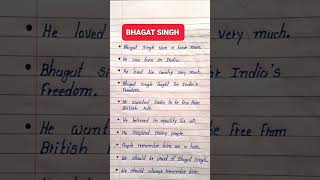 BHAGAT SINGH
Bhagat Singh was a brave man.
He was born in India.
He loved his country very much.
Bhagat Singh fought for India's
freedom.
He wanted India to be free from
British rule.
He believed in equality for all.
He inspired many people.
People remember him as a hero.
We should be proud of Bhagat Singh.
We should always remember him.
He loved
very much.
Bhagat Sin
for India's
Freedom.
He wan
be free from
British